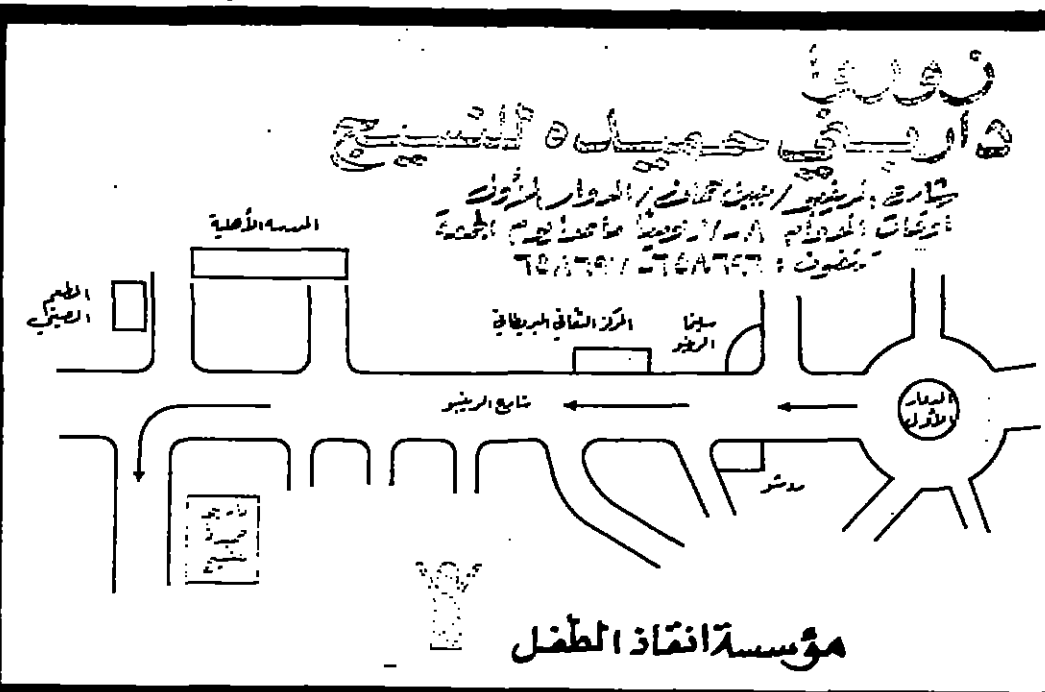 دار بني حميده للنسيج
شارع الرينبو / جبل عمان / الدوار الأول
أوقات الدوام يومياً ماعدا يوم الجمعة
تلفون : ٦٥٨٦٩٦ - ٦٥٨٦٩٧
المدرسه الأهلية
المطعم
الصيني
المركز الثقافي البريطاني
سينما
الرينبو
شارع الرينبو
الدوار
الأول
دار بني
حميدة
للنسيج
مؤسسة انقاذ الطفل